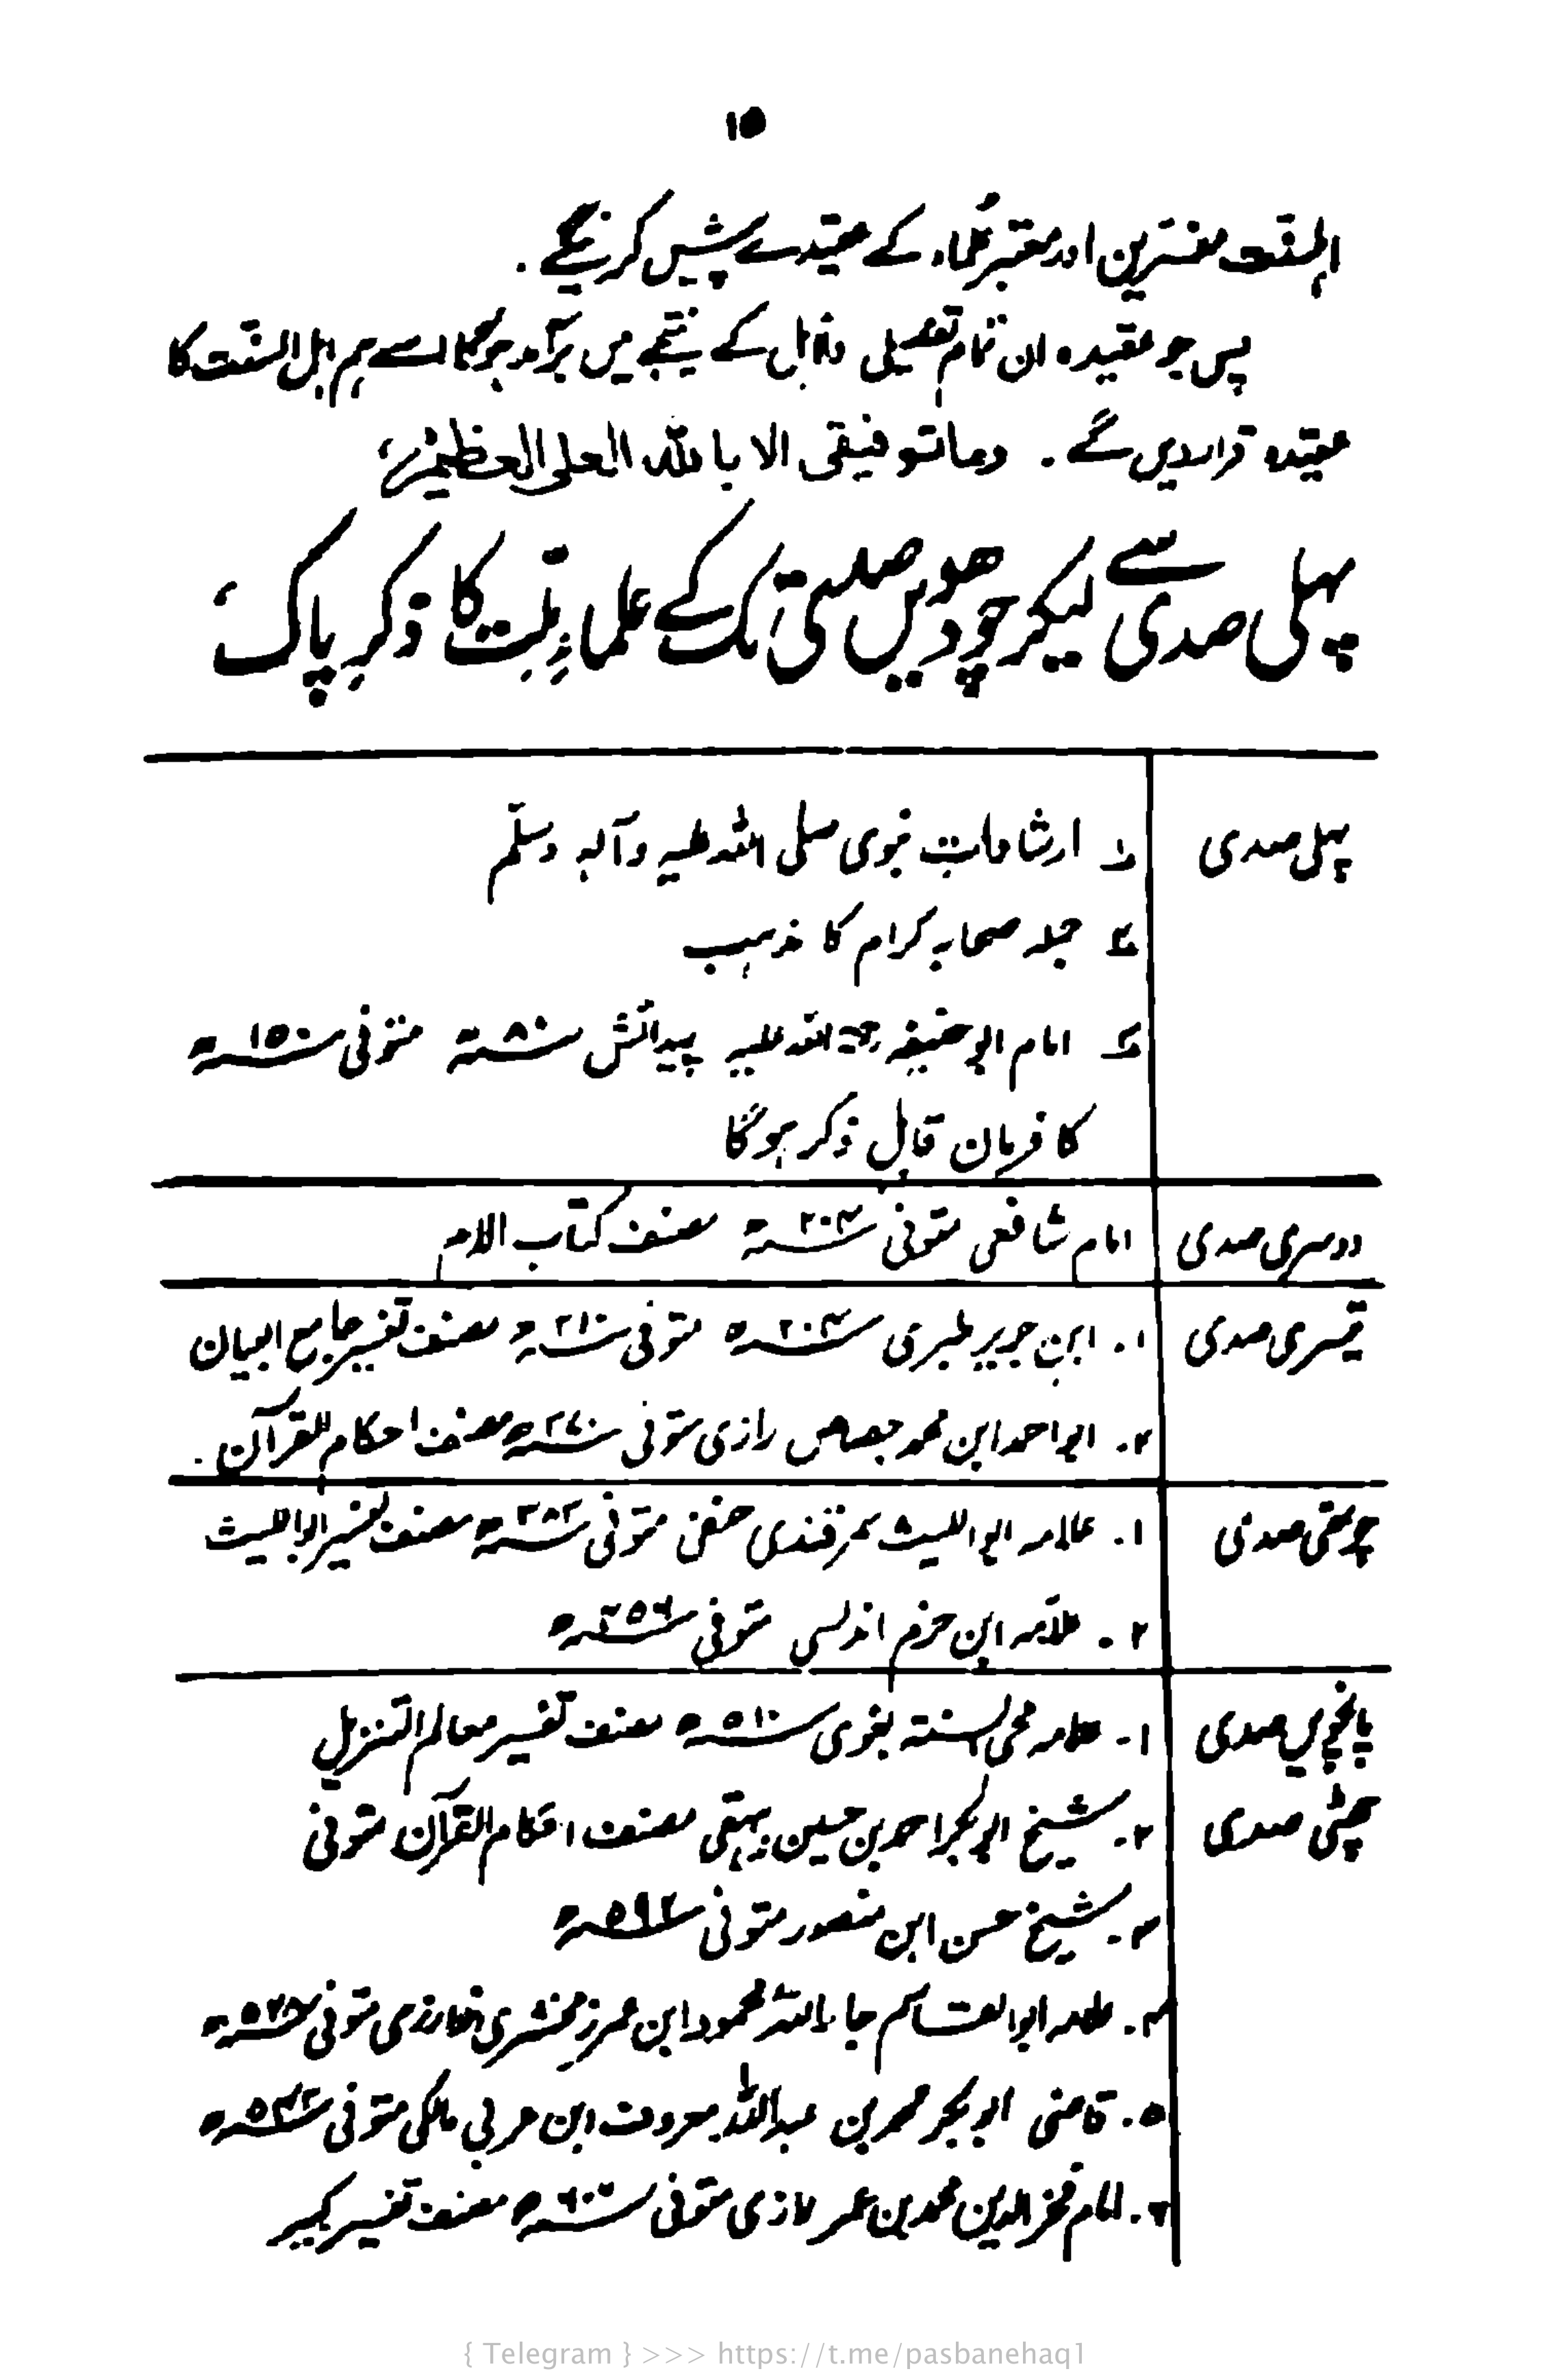 ۱۵
اہلسنّت مفسّرین اور معتبر علماء کے عقیدے پیش کرینگے.
پس جو عقیدہ ان تمام تفصیلی دلائل کے نتیجے میں برآمد ہوگا اسے ہم اہل السنّت کا
عقیدہ قرار دیں گے . وما توفیقی الا با للہ العلی العظیم،
پہلی صدی سے لیکر چودھویں صدی تک کے علماء ملّت کا ذکرِ پاک،
پہلی صدی ۱ ارشاداتِ نبوی صلی اللہ علیہ وآلہ وسلّم
۲ جملہ صحابہ کرام کا مذہب
۳ امام ابو حنیفہ رحمۃ اللہ علیہ پیدائش سنہ ۸۰ھ متوفی سنہ ۱۵۰ھ
کا فرمان قابل ذکر ہوگا
دوسری صدی امام شافعی متوفی سنہ ۲۰۴ھ مصنف کتاب الام
تیسری صدی ۱. ابن جریر طبری سنہ ۲۰۴ھ متوفی سنہ ۳۱۰ھ مصنف تفسیر جامع البیان
۲. ابو احمد ابن محمد جصاص رازی متوفی سنہ ۳۷۰ھ مصنف احکام القرآن.
چوتھی صدی ۱. علامہ ابو اللیث سمرقندی حنفی متوفی سنہ ۳۸۳ھ مصنف تفسیر ابو اللیث
۲. علاّمہ ابن حزم اندلسی متوفی سنہ ۴۵۶ھ
پانچویں صدی ۱- علامہ محی السنتہ بغوی سنہ ۵۱۰ھ مصنف تفسیر معالم التنزیل
چھٹی صدی ۲. شیخ ابوبکر احمد بن حسین بیہقی مصنف احکام القرآن متوفی
۳. شیخ حسن ابن منصور متوفی سنہ ۵۹۲ھ
۴. علامہ ابو القاسم جار اللہ محمود ابن عمر زمخشری خوارزمی متوفی سنہ ۵۳۸ھ
۵. قاضی ابو بکر محمد بن عبداللہ معروف ابن عربی مالکی متوفی سنہ ۵۴۲ھ
۶. امام فخر الدین محمد بن عمر رازی متوفی سنہ ۶۰۶ھ مصنف تفسیر کبیر
{ Telegram } >>> https://t.me/pasbanehaq1